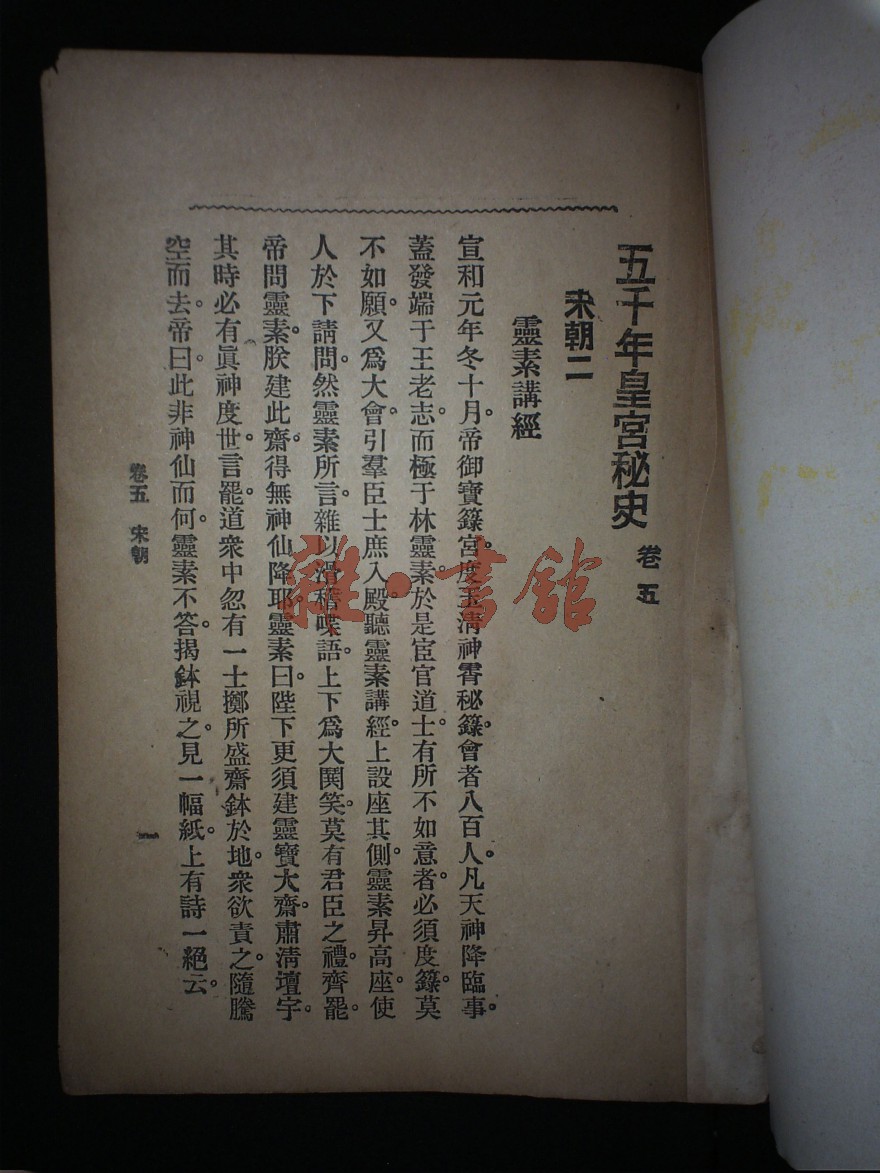 五千年皇宮秘史 卷五
宋朝二
靈素講經
宣和元年冬十月。帝御寶籙宮。度玉淸神霄秘籙。會者八百人。凡天神降臨事。
蓋發端于王老志。而極于林靈素。於是宦官道士。有所不如意者。必須度籙。莫
不如願。又爲大會。引羣臣士庶入殿。聽靈素講經。上設座其側。靈素昇高座。使
人於下請問。然靈素所言。雜以滑稽喋語。上下爲大鬨笑。莫有君臣之禮。齊罷。
帝問靈素。朕建此齋。得無神仙降耶。靈素曰。陛下更須建靈寶大齋。肅淸壇宇。
其時必有眞神度世。言罷。道衆中忽有一士擲所盛齋鉢於地。衆欲責之。隨騰
空而去。帝曰。此非神仙而何。靈素不答。揭鉢視之。見一幅紙。上有詩一絕云。
卷五 宋朝
一
雜·書館